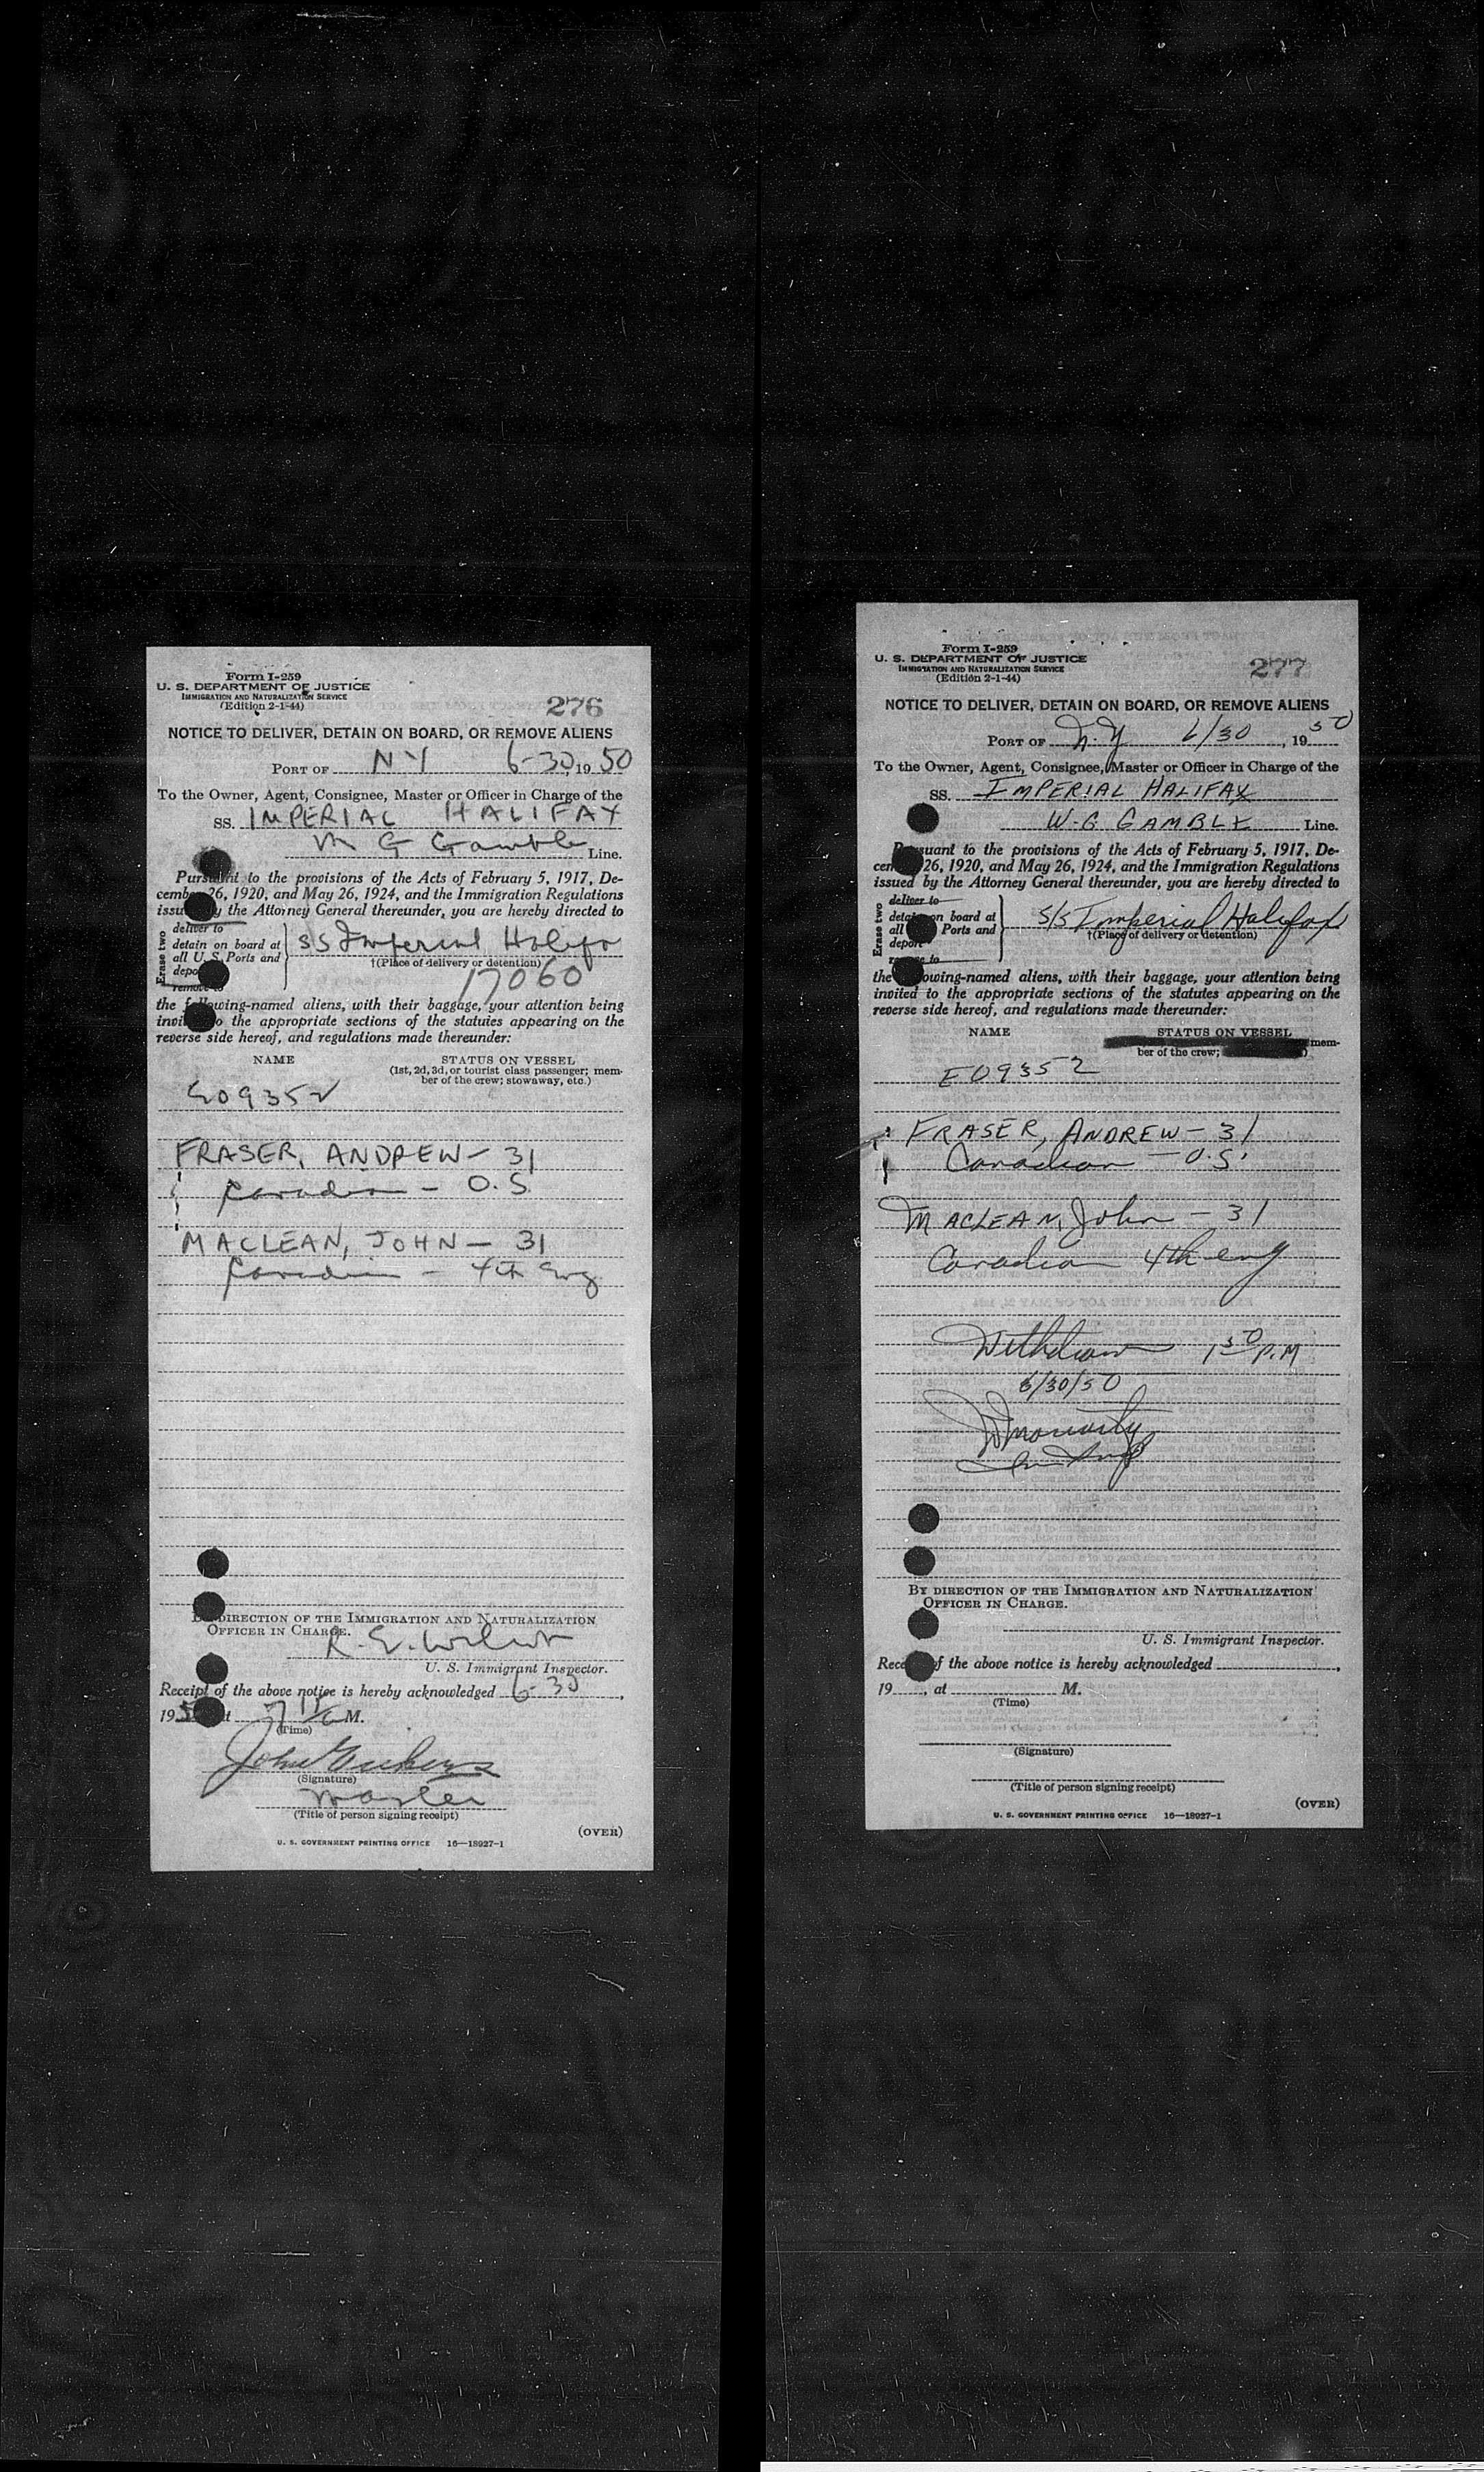 Form I-259
U. S. DEPARTMENT OF JUSTICE
IMMIGRATION AND NATURALIZATION SERVICE
(Edition 2-1-44)
276
NOTICE TO DELIVER, DETAIN ON BOARD, OR REMOVE ALIENS
PORT OF NY 6-30, 19 50
To the Owner, Agent, Consignee, Master or Officer in Charge of the
SS. IMPERIAL HALIFAX
M G Gamble Line.
Pursuant to the provisions of the Acts of February 5, 1917, De-
cember 26, 1920, and May 26, 1924, and the Immigration Regulations
issued by the Attorney General thereunder, you are hereby directed to
Erase two
deliver to
detain on board at
all U. S. Ports and
deport
remove to
SS Imperial Halifa
†(Place of delivery or detention)
17060
the following-named aliens, with their baggage, your attention being
invited to the appropriate sections of the statutes appearing on the
reverse side hereof, and regulations made thereunder:
NAME STATUS ON VESSEL
(1st, 2d, 3d, or tourist class passenger; mem-
ber of the crew; stowaway, etc.)
E09352
FRASER, ANDREW - 31
Canadian - O.S.
MACLEAN, JOHN - 31
Canadian - 4th Eng
BY DIRECTION OF THE IMMIGRATION AND NATURALIZATION
OFFICER IN CHARGE.
R. E.
U. S. Immigrant Inspector.
Receipt of the above notice is hereby acknowledged 6-30,
19 50 at M.
(Time)
John
(Signature)
Master
(Title of person signing receipt)
(OVER)
U. S. GOVERNMENT PRINTING OFFICE 16—18927-1
Form I-259
U. S. DEPARTMENT OF JUSTICE
IMMIGRATION AND NATURALIZATION SERVICE
(Edition 2-1-44)
277
NOTICE TO DELIVER, DETAIN ON BOARD, OR REMOVE ALIENS
PORT OF N.Y 6/30, 19 50
To the Owner, Agent, Consignee, Master or Officer in Charge of the
SS. IMPERIAL HALIFAX
W-G GAMBLE Line.
Pursuant to the provisions of the Acts of February 5, 1917, De-
cember 26, 1920, and May 26, 1924, and the Immigration Regulations
issued by the Attorney General thereunder, you are hereby directed to
Erase two
deliver to
detain on board at
all U. S. Ports and
deport
remove to
S/S Imperial Halifax
†(Place of delivery or detention)
the following-named aliens, with their baggage, your attention being
invited to the appropriate sections of the statutes appearing on the
reverse side hereof, and regulations made thereunder:
NAME STATUS ON VESSEL
mem-
ber of the crew;
E09352
FRASER, ANDREW - 31
Canadian - O.S.
MACLEAN, John - 31
Canadian 4th eng
Withdrawn 1 30 P.M
6/30/50
Moriarty
BY DIRECTION OF THE IMMIGRATION AND NATURALIZATION
OFFICER IN CHARGE.
U. S. Immigrant Inspector.
Receipt of the above notice is hereby acknowledged ,
19 , at M.
(Time)
(Signature)
(Title of person signing receipt)
(OVER)
U. S. GOVERNMENT PRINTING OFFICE 16—18927-1